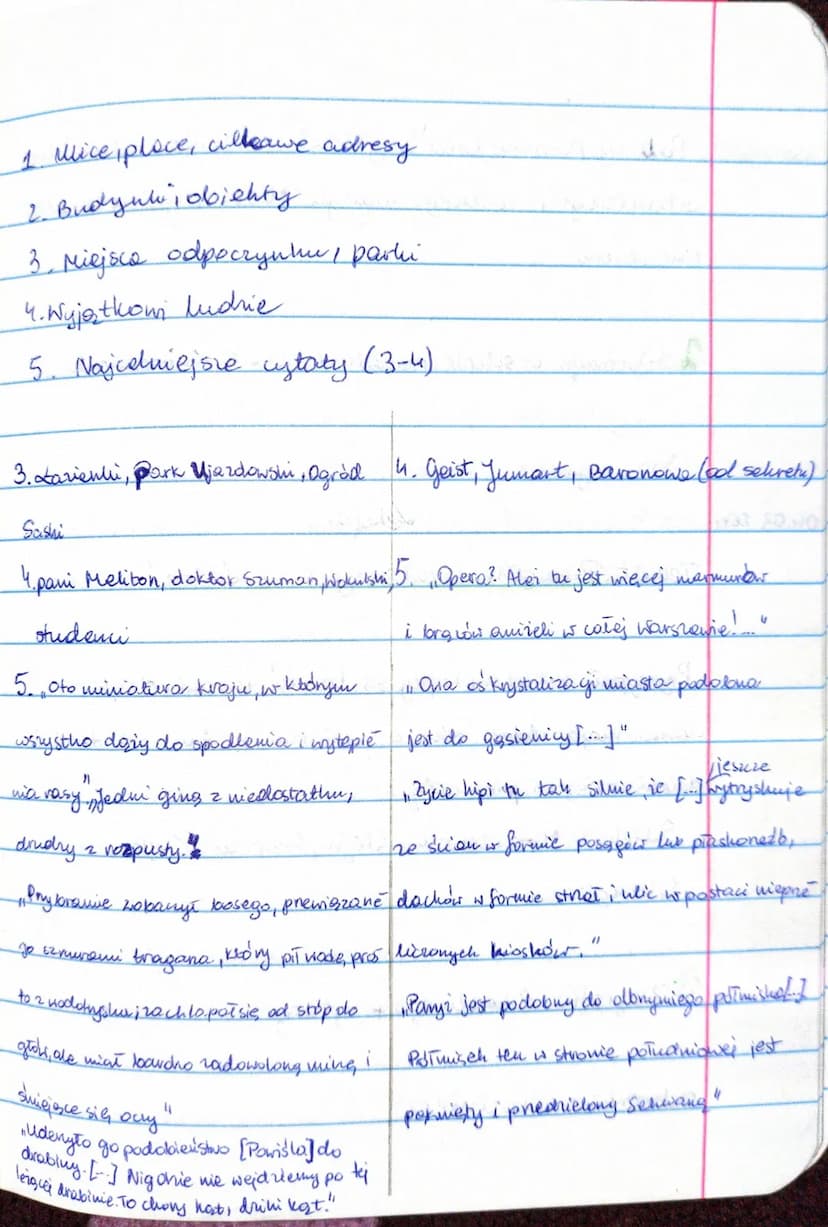 1. Ulice, place, ciekawe adresy
2. Budynki i obiekty
3. Miejsca odpoczynku, parki
4. Wyjątkowi ludzie
5. Najcelniejsze cytaty (3-4)
3. Łazienki, Park Ujazdowski, Ogród
Saski
4. pani Meliton, doktor Szuman, Wokulski,
studenci
5. „Oto miniatura kraju, w którym
wszystko dąży do spodlenia i wytępie
nia rasy" „Jedni giną z niedostatku,
drudzy z rozpusty."
„Przy kranie zobaczył bosego, przewiązane
go sznurami tragarza, który pił wodę pros
to z wodotrysku; zachlapał się od stóp do
głów, ale miał bardzo zadowoloną minę i
śmiejące się oczy"
„Uderzyło go podobieństwo [Powiśla] do
drabiny. [...] Nigdzie nie wejdziemy po tej
leżącej drabinie. To chory kąt, dziki kąt."
4. Geist, Jumart, Baronowa (od sekretu)
5. „Opera? Ależ tu jest więcej marmurów
i brązów aniżeli w całej Warszawie!..."
„Ona oś krystalizacji miasta podobna
jest do gąsienicy [...]"
„Życie kipi tu tak silnie, że [...] jeszcze wytryskuje
ze ścian w formie posągów lub płaskorzeźb,
dachów w formie strzał i ulic w postaci nieprze
liczonych kiosków."
„Paryż jest podobny do olbrzymiego półmiska [...]
Półmisek ten w stronie południowej jest
pęknięty i przedzielony Sekwaną"